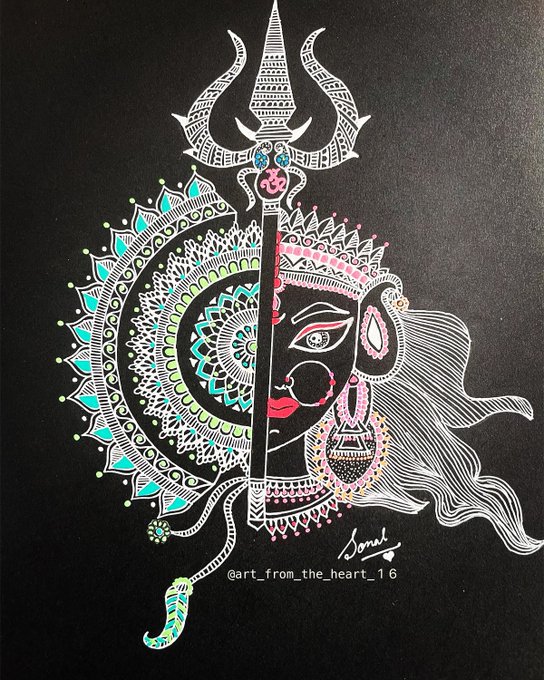 ॐ
Sonal
@art_from_the_heart_16